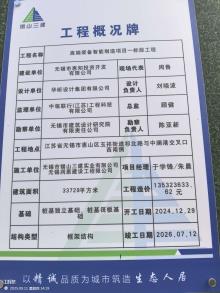 锡山三建
工程概况牌
工程名称 高端装备智能制造项目一标段工程
建设单位 无锡市惠知投资开发有限公司 现场代表 周鲁
设计单位 华昕设计集团有限公司 设计负责人 刘晓波
监理单位 中咏联行(江苏)工程科技有限公司 总监 顾健
勘察单位 无锡市建筑设计研究院有限责任公司 勘察负责人 陈亚新
工程地点 江苏省无锡市惠山区玉祁街道标北路与中镇港交叉口西南侧
施工单位 无锡市锡山三建实业有限公司 无锡润景建设工程有限公司 项目经理 于学锋/朱晨
建筑面积 33728平方米 工程造价 135323633.62 元
基础 桩基独立基础、桩基筏板基础 开工日期 2024.12.28
结构类型 框架结构 竣工日期 2026.07.12
以精诚品质为城市筑造生态人居